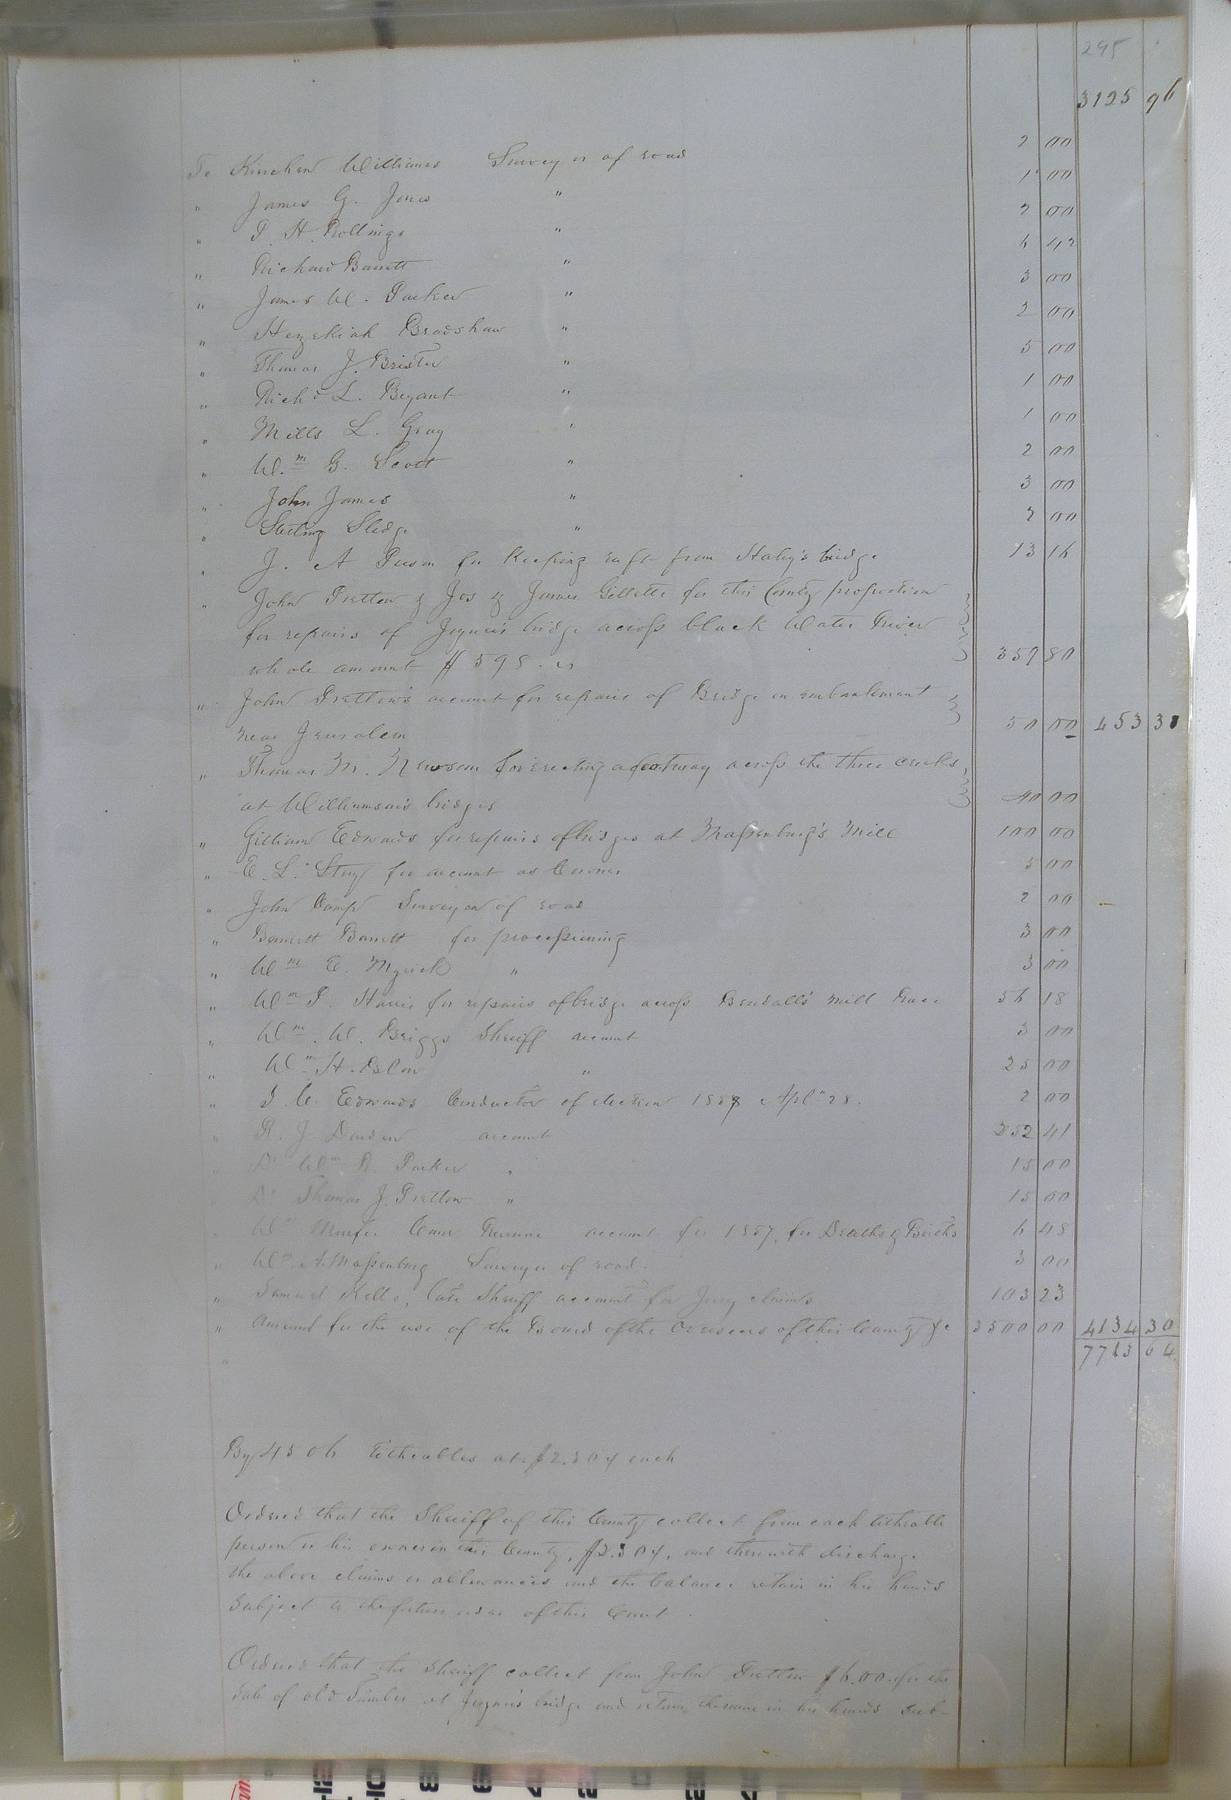 295
3125 96
To Kinchen Williams Surveyor of road 2 00
" James G. Jones " 1 00
" P. H. Rollings " 2 00
" Richard Barrett " 6 42
" James W. Parker " 3 00
" Hezekiah Bradshaw " 2 00
" Thomas J. Brister " 5 00
" Richd L. Bryant " 1 00
" Mills L. Gray " 1 00
" Wm G. Scott " 2 00
" John James " 3 00
" Sterling Sledge " 2 00
" J. A Person for Keeping raft from Haley's bridge 13 16
" John Pretlow & Jos & James Gillette for this County proportion
for repairs of Joyner's bridge across black Water River
whole amount $598. 359 80
" John Pretlow's account for repairs of Bridge on embankment
near Jerusalem 50 00 453 38
" Thomas M. Newsom for erecting a footway across the three creeks
at Williamson's bridges 40 00
" Gilliam Edwards for repairs of bridges at Massenburg's Mill 100 00
" E. L. for account as Coroner 5 00
" John Camp Surveyor of road 2 00
" Bennett Barrett for processioning 3 00
" Wm E. Myrick " 3 00
" Wm J. Harris for repairs of bridge across Mill Race 56 18
" Wm. W. Briggs Sheriff account 3 00
" Wm H. Blow " 25 00
" J. C. Edwards Conductor of election 1858 Apl 28. 2 00
" R. J. Darden account 252 41
" Dr Wm R. Parker " 15 00
" Dr Thomas J. Pretlow " 15 00
" Wm Comr Revenue account for 1857, for Deaths & Births 6 48
" Wm A. Massenburg Surveyor of road. 3 00
" Samuel Kello, late Sheriff account for Jury claims 103 23
" Amount for the use of the Board of the Overseers of this County &c 3500 00 4134 30
" 7713 64
By 4506 titheables at $2.304 each
Ordered that the Sheriff of this County collect from each titheable
person or his owner in this County, $2.304, and therewith discharge
the above claims or allowances and the balance retain in his hands
Subject to the future order of this Court.
Ordered that the Sheriff collect from John Pretlow $6.00 for the
sale of old timber at Joyner's bridge and retain the same in his hands sub-